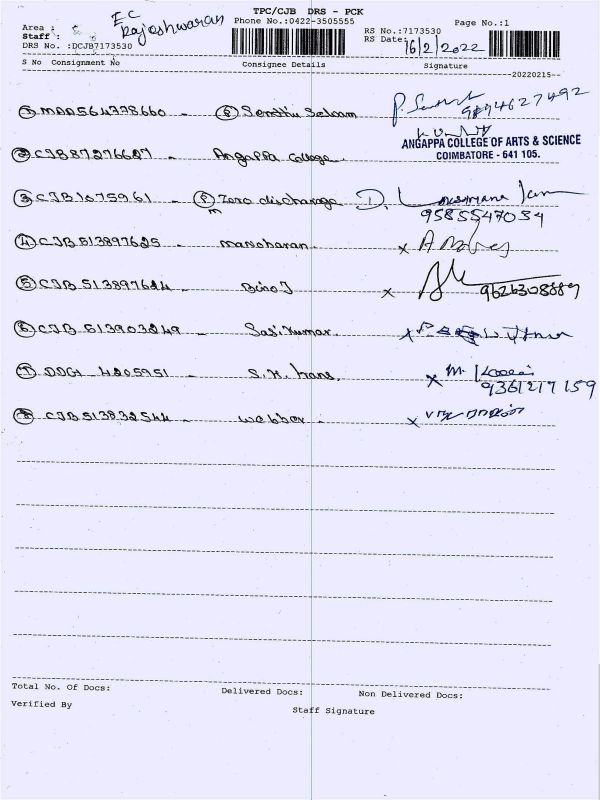 TPC/CJB DRS - PCK
EC
Rajeshwaran
Phone No.:0422-3505555
Page No.:1
Area :
Staff :
DRS No. :DCJB7173530
RS No.:7173530
RS Date: 16/2/2022
S No Consignment No Consignee Details Signature
20220215
① MAA564378660 - Ⓟ Senthil Selvam 9894627492
② CJB87276627 - Angappa College.
ANGAPPA COLLEGE OF ARTS & SCIENCE
COIMBATORE - 641 105.
③ CJB1075961 - Zero discharage D.
9585547034
④ CJB513897625 - Manoharan x
⑤ CJB513897624 - Bino J x
⑥ CJB513903249 - Sasi Kumar. x
⑦ 4205951 - S.K. trans, x M
9361217159
⑧ CJB513832544 - x
Total No. Of Docs: Delivered Docs: Non Delivered Docs:
Verified By Staff Signature